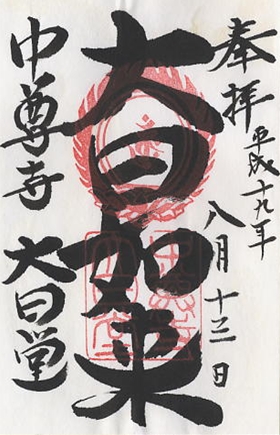 奉拝
平成十九年
八月十三日
大日如来
中尊寺 大日堂